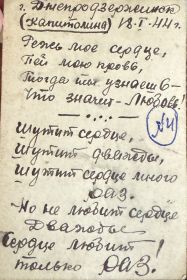 г. Днепродзержинск
(Капитолина) 18.I-44 г.
Режь мое сердце,
Пей мою кровь,
Тогда ты узнаешь
Что значит - Любовь.
Шутит сердце,
Шутит дважды,
Шутит сердце много
раз.
Но не любит сердце
Сердце любит!
только раз.